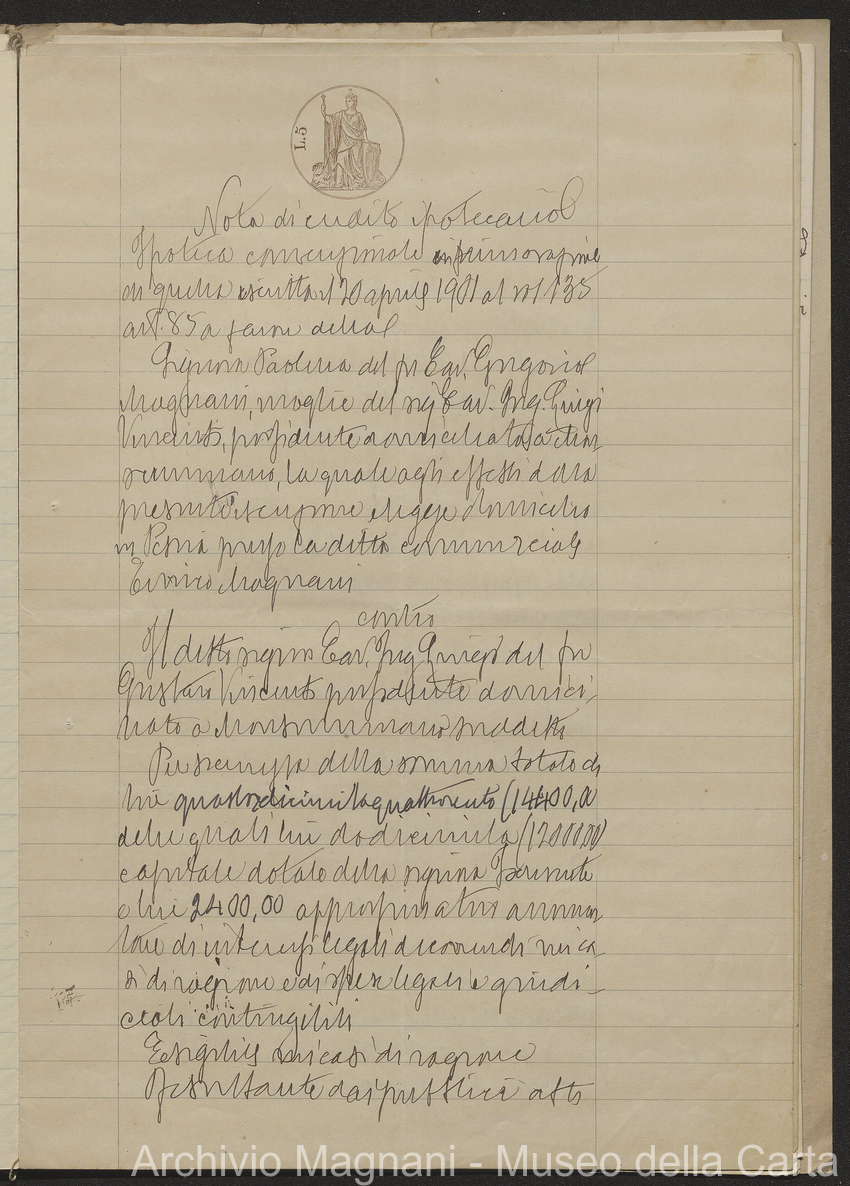 L. 5
Nota di credito ipotecario
Ipoteca convenzionale in rinnovazione
di quella iscritta il 20 aprile 1901 al vol 135
art. 85 a favore della
Signora Paolina del fu Cav. Gregorio
Magnani, moglie del sig Cav. Ing. Luigi
Vincenti, possidente domiciliata a Mon
summano, la quale agli effetti della
presente iscrizione elegge domicilio
in Pescia presso la ditta commerciale
Enrico Magnani
contro
Il detto signor Cav. Ing Luigi del fu
Gustavo Vincenti possidente domici-
liato a Monsummano suddetto
Per sicurezza della somma totale di
lire quattordicimilaquattrocento (14400,00
delle quali lire dodicimila (12000,00)
capitale dotale della signora
e lire 2400,00 approssimativo ammon
tare di interessi legali decorrendi nei ca
si di ragione e di spese legali e giudi-
ciali contingibili
Esigibile nei casi di ragione
Resultante dai pubblici atti
Archivio Magnani - Museo della Carta